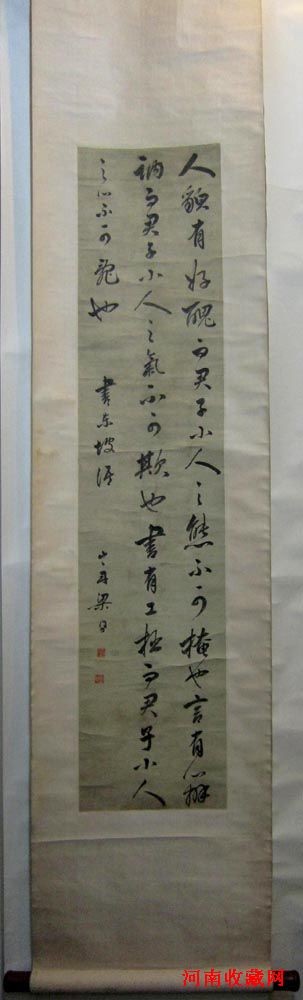 人貌有好醜而君子小人之態不可掩也言有辯
訥而君子小人之氣不可欺也書有工拙而君子小人
之心不可亂也
書東坡語
山舟梁同
河南收藏网